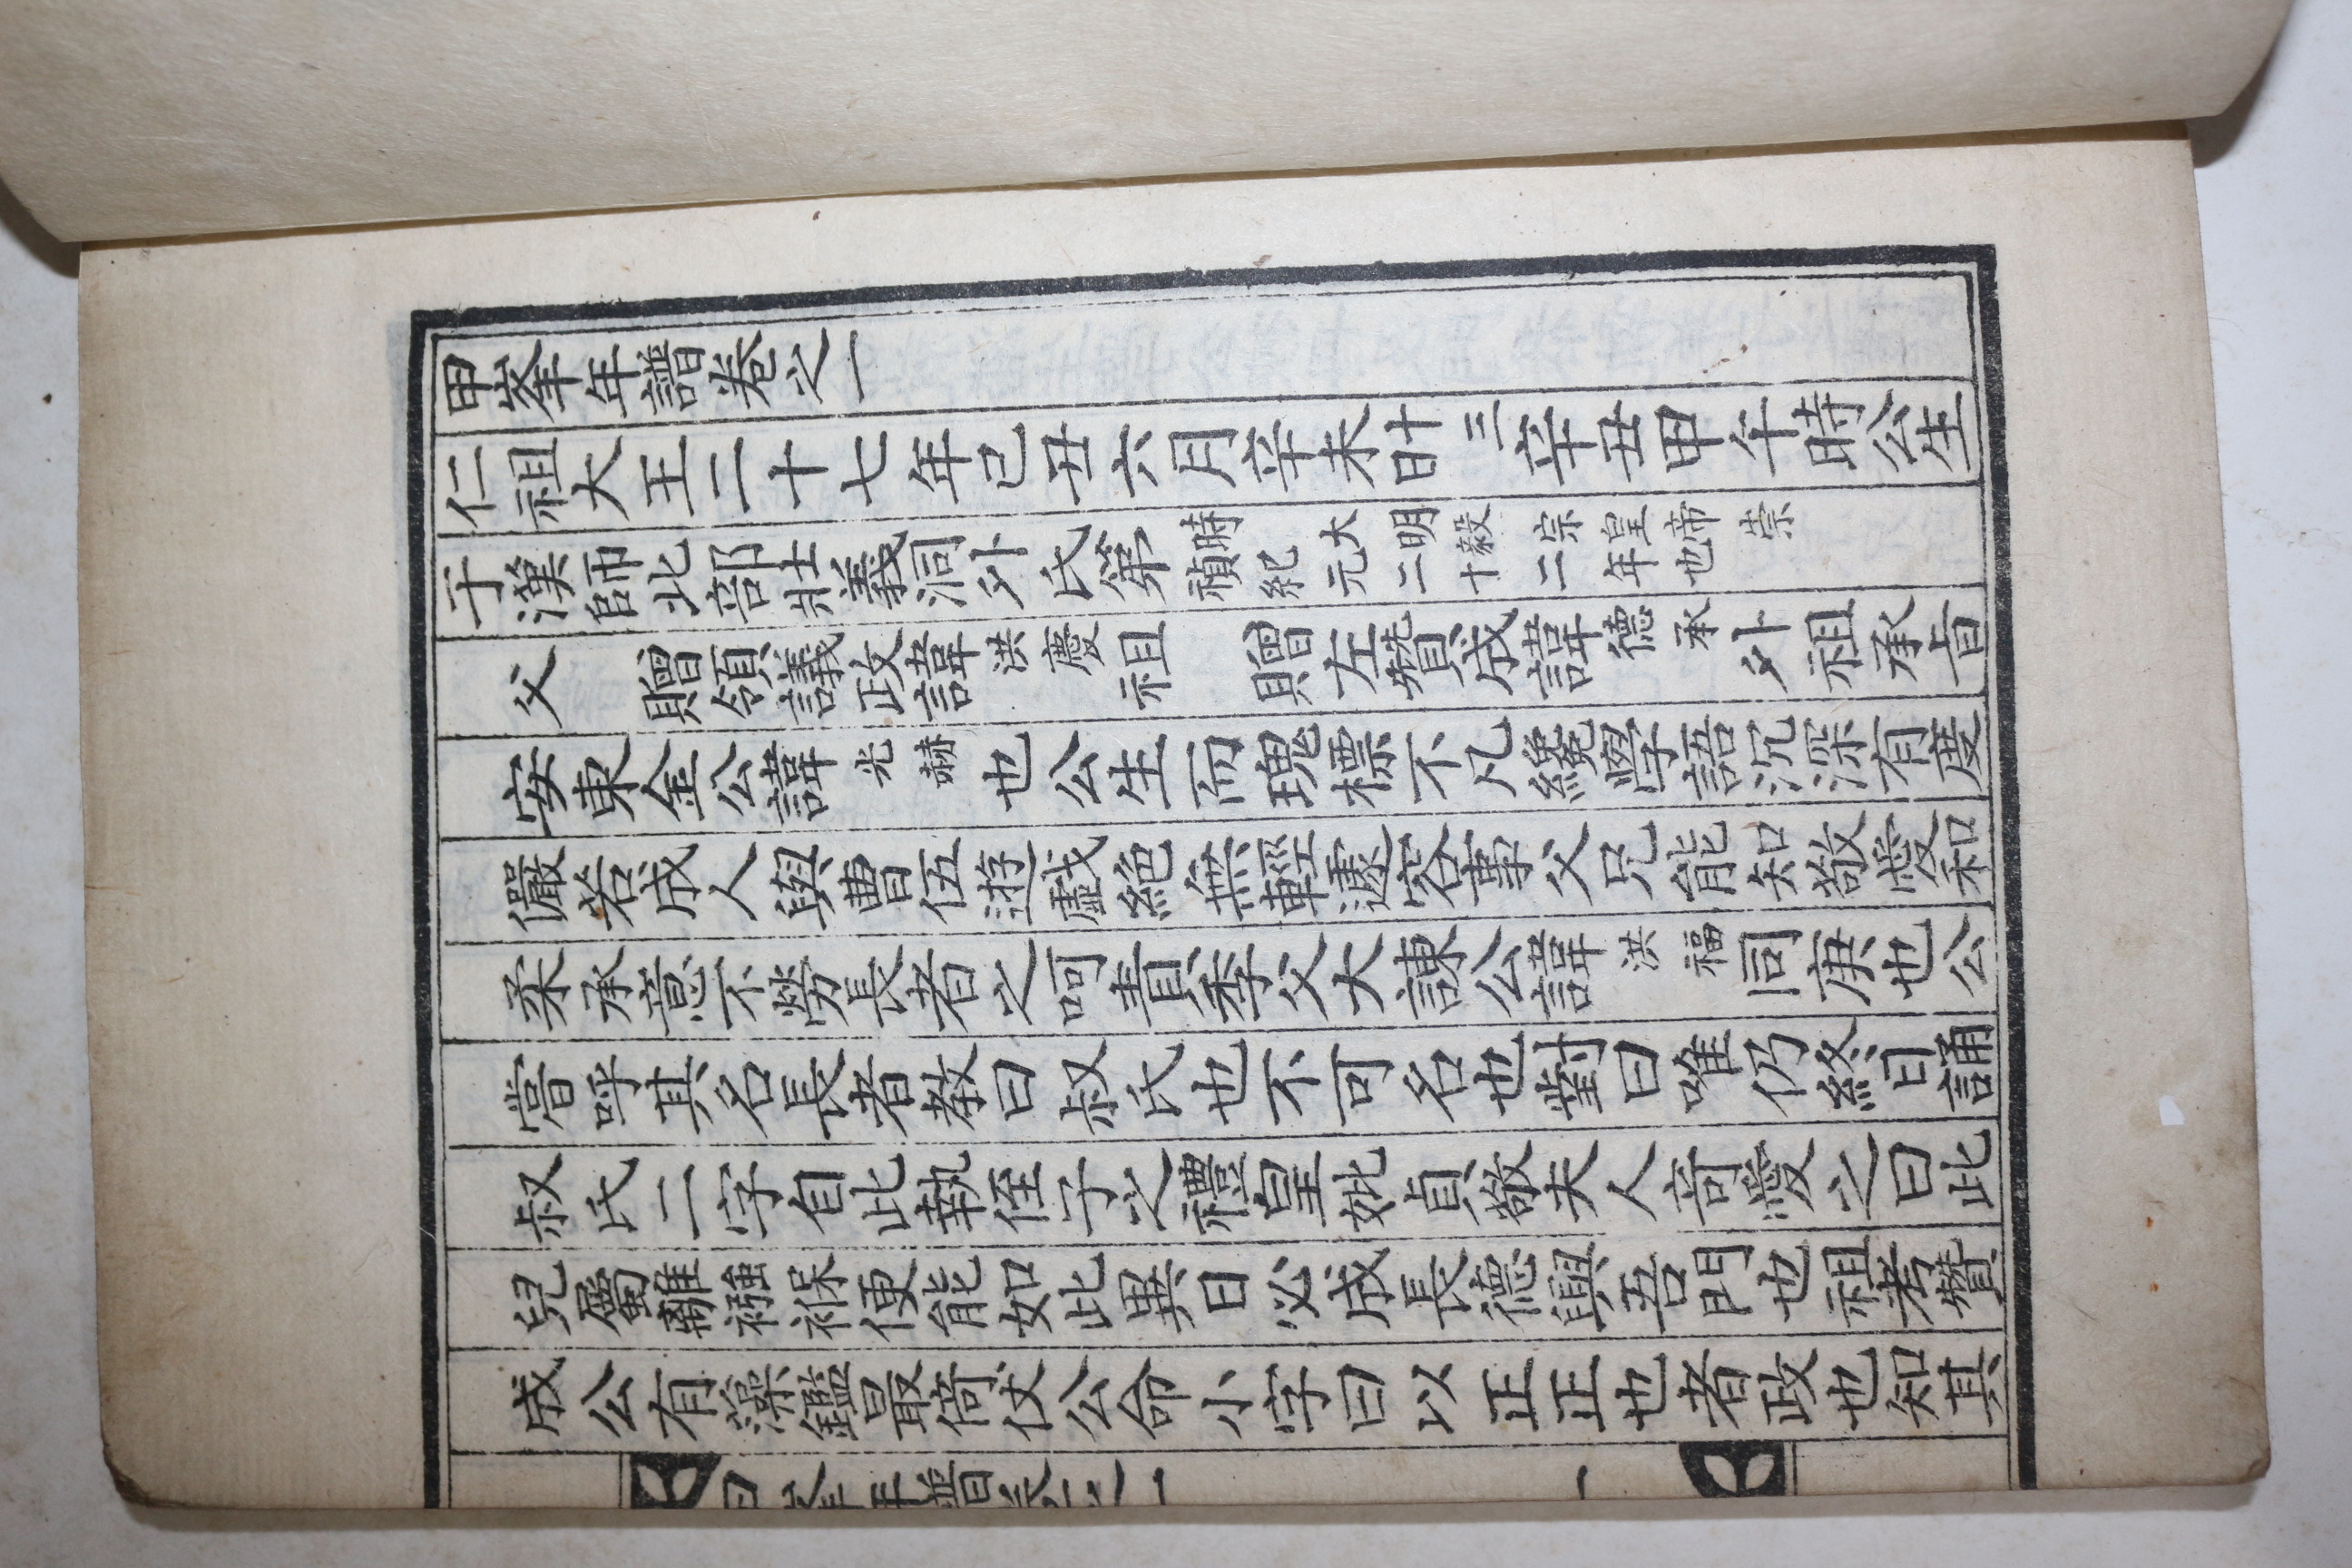 甲峯年譜卷之一
仁祖大王二十七年己丑六月辛未十三日辛丑甲午時公生
于漢師北部壯義洞外氏第時大明毅宗皇帝崇
禎紀元二十二年也
父　贈領議政諱洪慶祖　贈左贊成諱德承外祖承旨
安東金公諱光赫也公生而瑰標不凡纔學語沉深有度
儼若成人與曹伍遊戲絶無輕遽容事父兄能知敬愛和
柔承意不勞長者之呵責季父大諫公諱洪福同庚也公
嘗呼其名長者敎曰叔氏也不可名也對曰唯仍終日誦
叔氏二字自此執侄子之禮皇妣貞敬夫人奇愛之曰此
兒屬離襁褓便能如此異日必成長德與吾門也祖考贊
成公有藻鑑最倚仗公命小字曰以正正也者政也知其
甲峯年譜卷之一　一